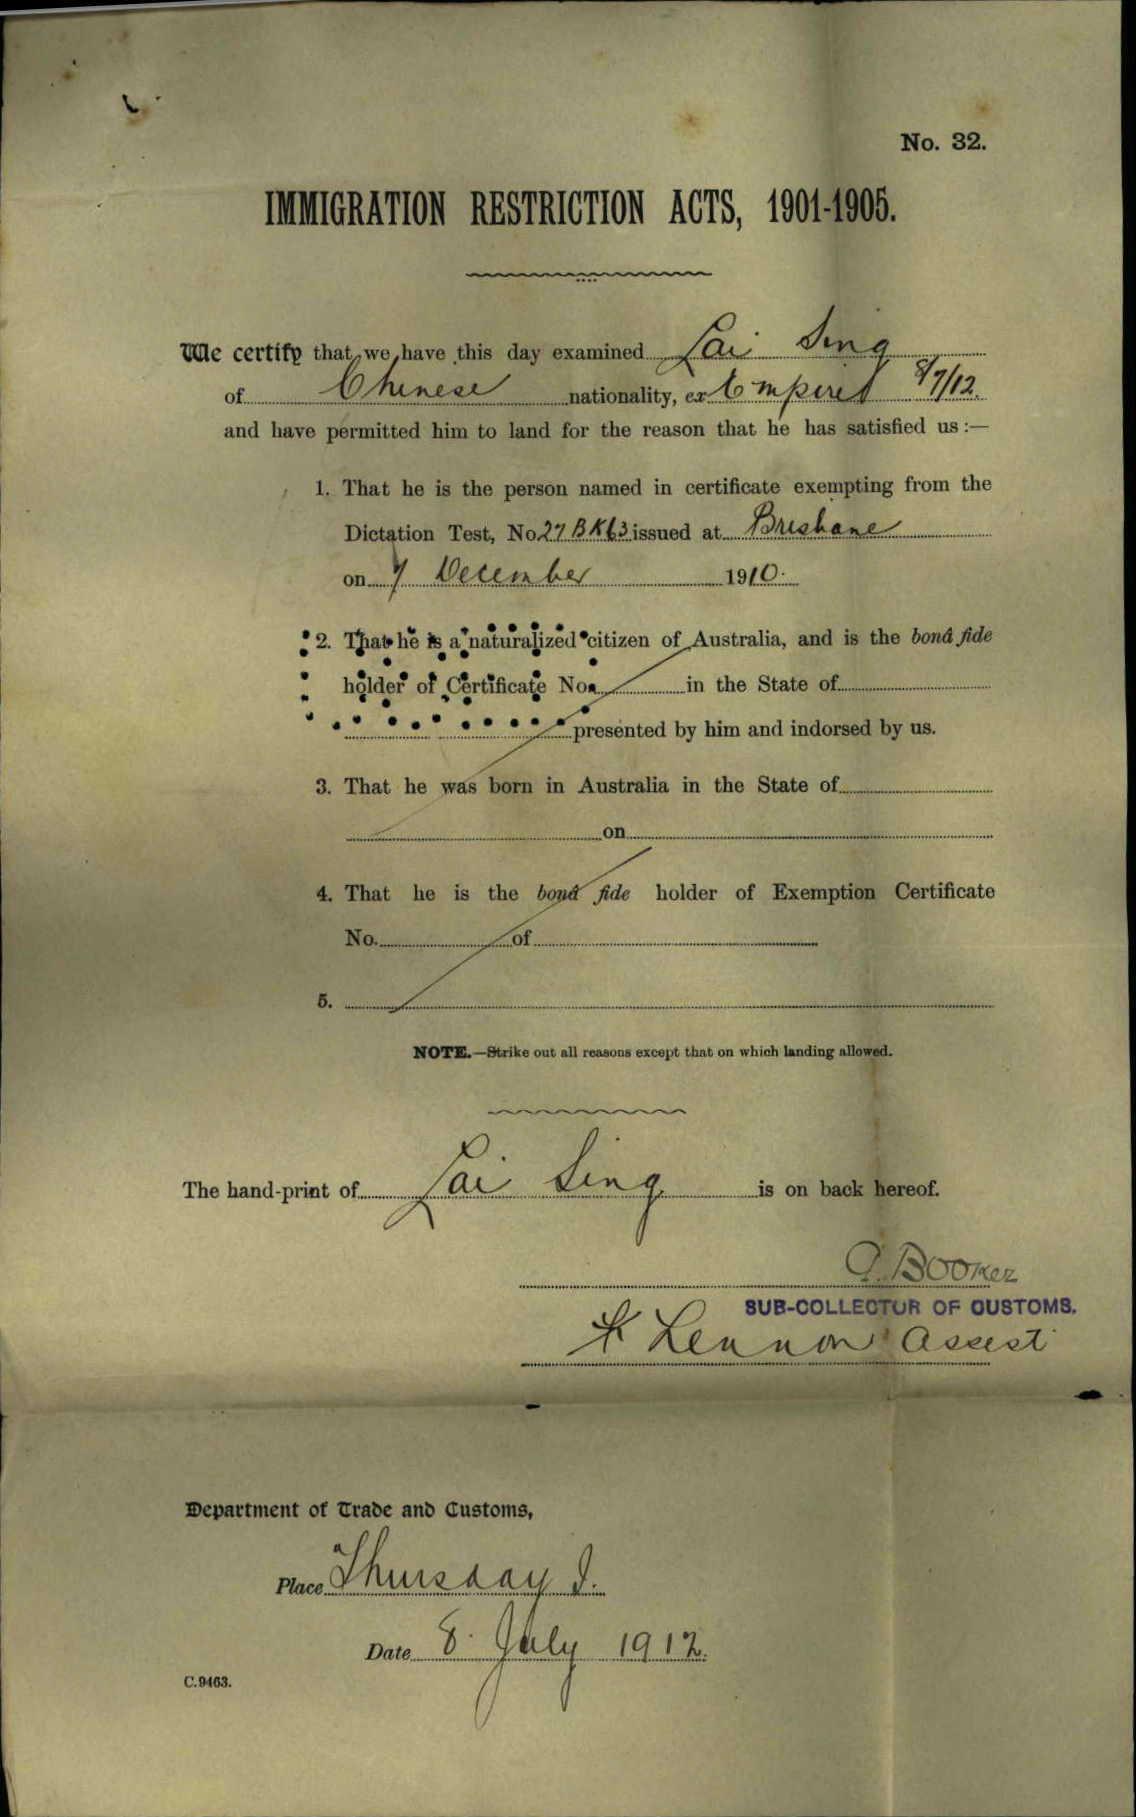 No. 32.
IMMIGRATION RESTRICTION ACTS, 1901-1905.
We certify that we have this day examined Lai Sing
of Chinese nationality, ex Empire 8/7/12.
and have permitted him to land for the reason that he has satisfied us:—
1. That he is the person named in certificate exempting from the
Dictation Test, No 27 BK63 issued at Brisbane
on 7 December 1910.
2. That he is a naturalized citizen of Australia, and is the bonâ fide
holder of Certificate No. in the State of
presented by him and indorsed by us.
3. That he was born in Australia in the State of
on
4. That he is the bonâ fide holder of Exemption Certificate
No. of
5.
NOTE.—Strike out all reasons except that on which landing allowed.
The hand-print of Lai Sing is on back hereof.
Booker
SUB-COLLECTOR OF CUSTOMS.
Lennon Assist
Department of Trade and Customs,
Place Thursday I.
Date 8. July 1912.
C.9463.